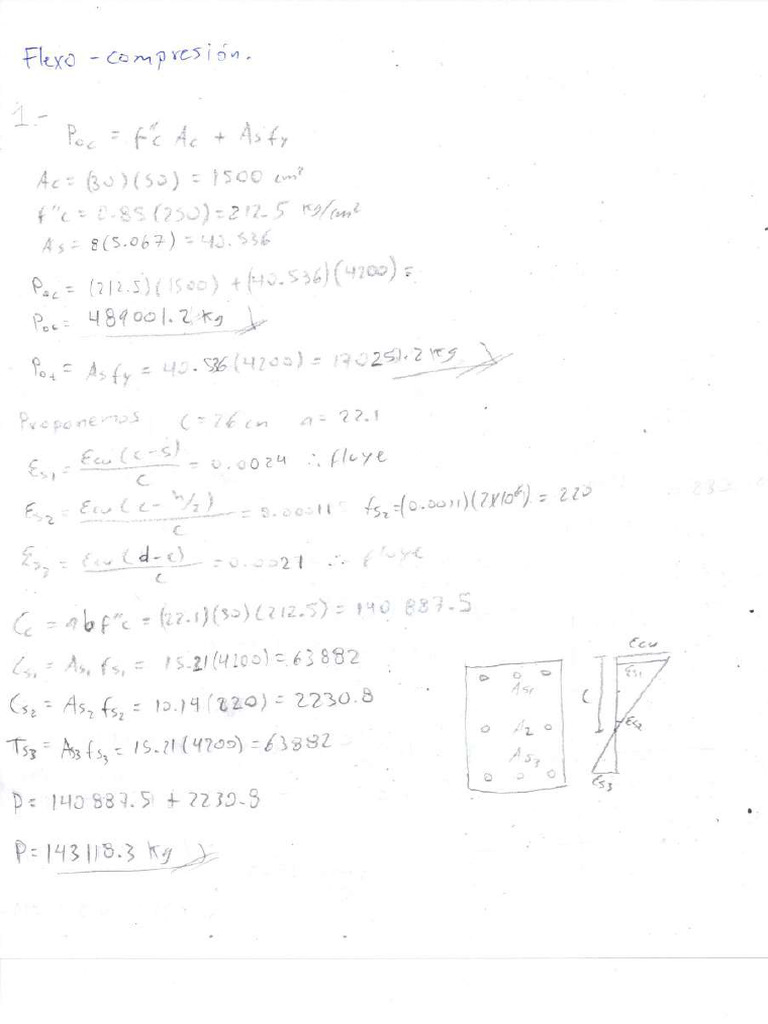 Flexo - compresión.
1.-
Poc = f"c Ac + As fy
Ac = (30)(50) = 1500 cm²
f"c = 0.85(250) = 212.5 kg/cm²
As = 8(5.067) = 40.536
Poc = (212.5)(1500) + (40.536)(4200) =
Poc = 489001.2 kg
Pot = As fy = 40.536(4200) = 170251.2 kg
Proponemos c = 26 cm a = 22.1
Es1 = Ecu(c-5)/c = 0.0024 ∴ fluye
Es2 = Ecu(c-h/2)/c = 0.00011 fs2 = (0.0011)(2x10⁶) = 220
Es3 = Ecu(d-c)/c = 0.0021 ∴ fluye
Cc = abf"c = (22.1)(30)(212.5) = 140 887.5
Cs1 = As1 fs1 = 15.21(4200) = 63882
Cs2 = As2 fs2 = 10.14(220) = 2230.8
Ts3 = As3 fs3 = 15.21(4200) = 63882
P = 140 887.5 + 2230.8
P = 143118.3 kg
As1
A2
As3
Ecu
Es1
c
Es2
Es3